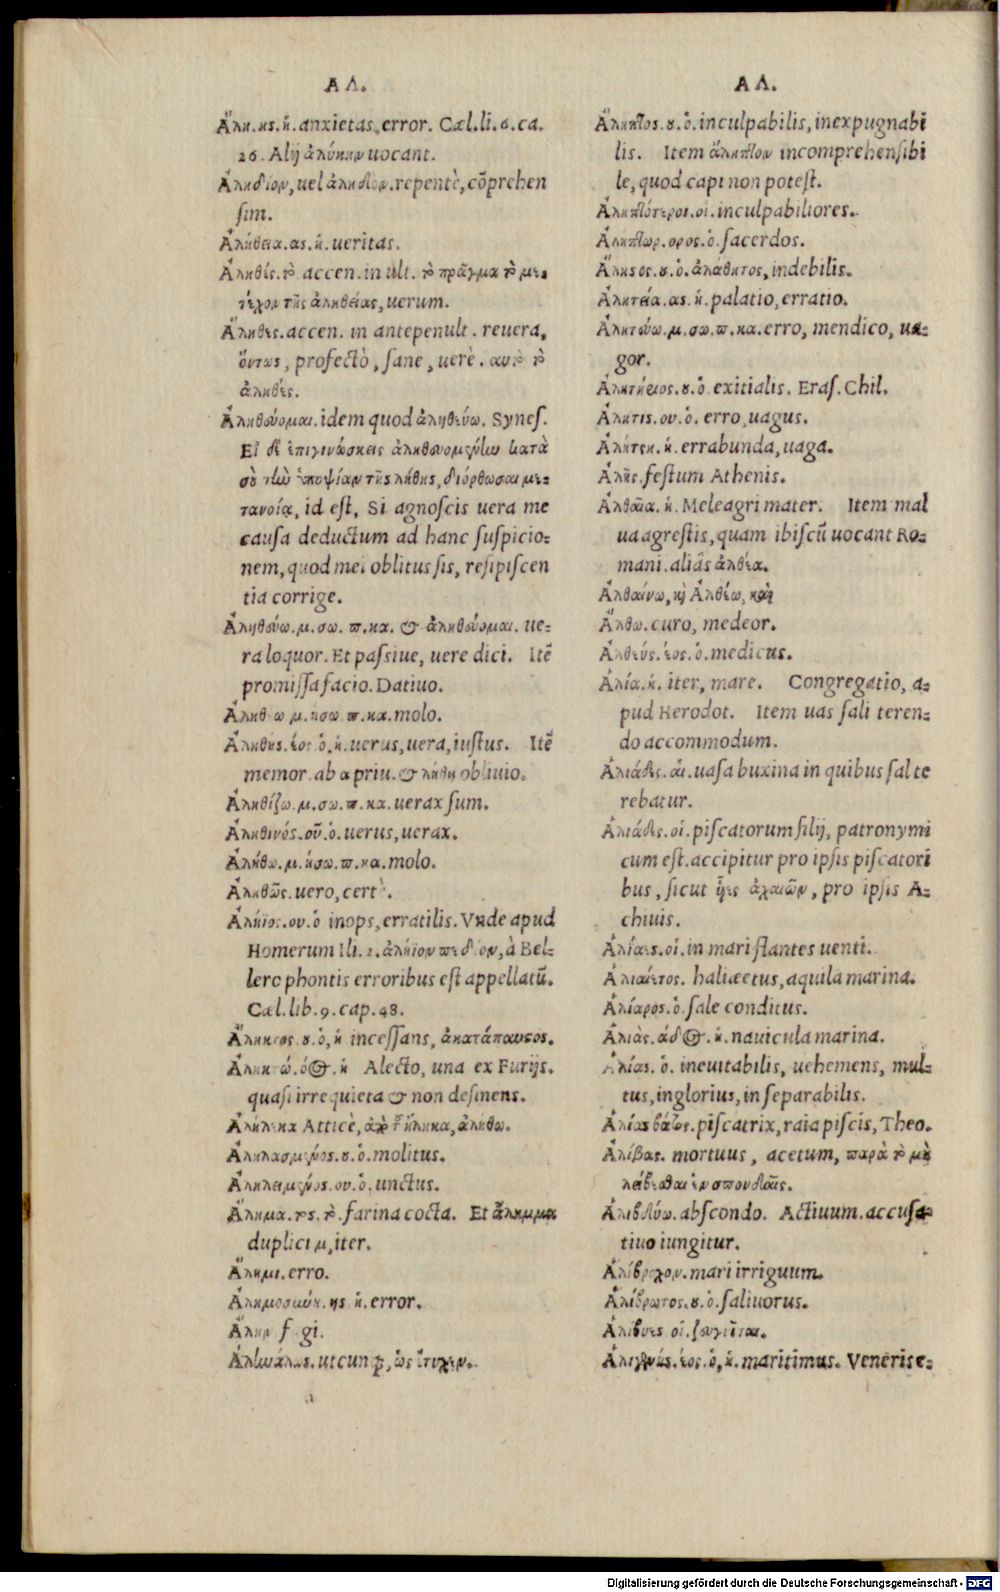 ΑΛ.
Ἄλη.ης.ἡ.anxietas,error. Cæl.li.6.ca.
26. Alij ἀλύκην uocant.
Ἀληδίον, uel ἀληδόν.repentè, cõprehen
sim.
Ἀλήθεια.ας.ἡ.ueritas.
Ἀληθές.τὸ accen.in ult. τὸ πρᾶγμα τὸ με-
τέχον τῆς ἀληθείας, uerum.
Ἄληθες.accen. in antepenult. reuera,
ὄντως, profectò, sane, uerè. αντὶ τὸ
ἀληθές.
Ἀληθεύομαι.idem quod ἀληθεύω. Synes.
Εἰ δὲ ἐπιγινώσκεις ἀληθευομένην κατὰ
σοῦ τὴν ὑποψίαν τῆς λήθης, διόρθωσαι με-
τανοίᾳ, id est, Si agnoscis uera me
causa deductum ad hanc suspicio-
nem, quod mei oblitus sis, resipiscen
tia corrige.
Ἀληθεύω.μ.σω.π.κα. & ἀληθεύομαι. ue-
ra loquor. Et passiue, uere dici. Itẽ
promissa facio. Datiuo.
Ἀληθ ω μ.ησω.π.κα.molo.
Ἀληθής.έος.ὁ,ἡ.uerus, uera, iustus. Itẽ
memor.ab α priu. & λήθη obliuio.
Ἀληθίζω.μ.σω.π.κα.uerax sum.
Ἀληθινός.οῦ.ὁ.uerus, uerax.
Ἀλήθω.μ.ήσω.π.κα.molo.
Ἀληθῶς.uero, certè.
Ἀλήϊος.ου.ὁ inops, erratilis. Vnde apud
Homerum Ili.2.ἀλήϊον πεδίον, à Bel-
lerophontis erroribus est appellatũ.
Cæl.lib.9.cap.48.
Ἄληκτος.ου.ὁ,ἡ incessans, ἀκατάπαυστος.
Ἀληκτώ.όος.ἡ Alecto, una ex Furijs.
quasi irrequieta & non desinens.
Ἀλήλεκα Atticè, ἀπὸ τοῦ ἤληκα, ἀλήθω.
Ἀληλασμένος.ου.ὁ.molitus.
Ἀληλειμένος.ου.ὁ.unctus.
Ἄλημα.τος.τὸ.farina cocta. Et ἄλημμα
duplici μ, iter.
Ἄλημι.erro.
Ἀλημοσύνη.ης ἡ.error.
Ἀληωάλως.utcunq;, ὡς ἔτυχεν.
ΑΛ.
Ἄληπτος.ου.ὁ.inculpabilis, inexpugnabi
lis. Item ἄληπτον incomprehensibi
le, quod capi non potest.
Ἀληπτότεροι.οἱ.inculpabiliores.
Ἀλήπτωρ.ορος.ὁ.sacerdos.
Ἄληστος.ου.ὁ.ἀλάθητος, indebilis.
Ἀλητεία.ας.ἡ.palatio, erratio.
Ἀλητεύω.μ.σω.π.κα.erro, mendico, ua-
gor.
Ἀλητήριος.ου.ὁ exitialis. Eras.Chil.
Ἀλήτης.ου.ὁ. erro, uagus.
Ἀλήτση.ἡ.errabunda, uaga.
Ἀλῆς.festum Athenis.
Ἀλθαία.ἡ.Meleagri mater. Item mal
ua agrestis, quam ibiscũ uocant Ro-
mani.aliâs ἀλθέα.
Ἀλθαίνω, καὶ Ἀλθέω, καὶ
Ἄλθω.curo, medeor.
Ἀλθεύς.έος.ὁ.medicus.
Ἁλία.ἡ. iter, mare. Congregatio, a-
pud Herodot. Item uas sali teren-
do accommodum.
Ἁλιάδες.αἱ.uasa buxina in quibus sal te
rebatur.
Ἁλιάδες.οἱ.piscatorum filij, patronymi
cum est.accipitur pro ipsis piscatori
bus, sicut ἧες ἀχαιῶν, pro ipsis A-
chiuis.
Ἁλιάεις.οἱ.in mari flantes uenti.
Ἁλιαίετος. haliæetus, aquila marina.
Ἁλίαρος.ὁ.sale conditus.
Ἁλιάς.άδος.ἡ.nauicula marina.
Ἁλίας.ὁ. ineuitabilis, uehemens, mul-
tus, inglorius, inseparabilis.
Ἁλίας βάτος.piscatrix, raia piscis, Theo.
Ἀλίβας. mortuus, acetum, παρὰ τὸ μὴ
λείβεσθαι ἐν σπονδαῖς.
Ἁλιβδύω.abscondo. Actiuum.accusa
tiuo iungitur.
Ἁλίβροχον.mari irriguum.
Ἁλίβρωτος.ου.ὁ.saliuorus.
Ἀλίβυες οἱ.ζευγῖται.
Ἁλιγενής.έος.ὁ,ἡ.maritimus. Venerise-
Digitalisierung gefördert durch die Deutsche Forschungsgemeinschaft - DFG